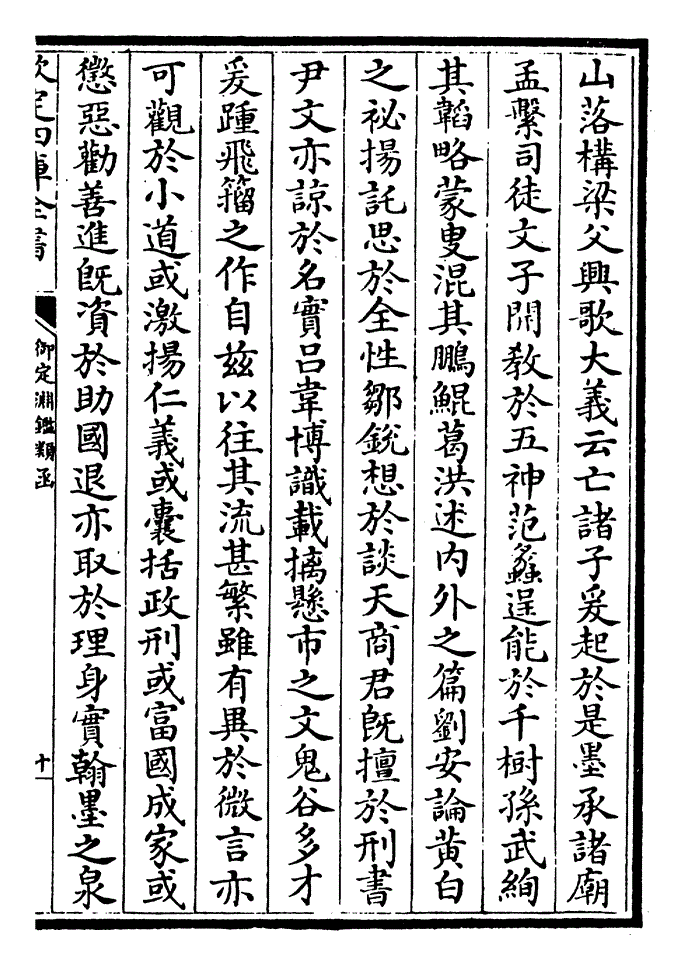 山落構梁父興歌大義云亡諸子爰起於是墨承諸廟
孟繫司徒文子開教於五神范蠡逞能於千樹孫武絢
其韜略蒙叟混其鵬鯤葛洪述内外之篇劉安論黄白
之祕揚託思於全性鄒銳想於談天商君旣擅於刑書
尹文亦諒於名實吕韋博識載摛懸市之文鬼谷多才
爰踵飛箝之作自兹以往其流甚繁雖有異於微言亦
可觀於小道或激揚仁義或囊括政刑或富國成家或
懲惡勸善進旣資於助國退亦取於理身實翰墨之泉
欽定四庫全書
御定淵鑑類函
十